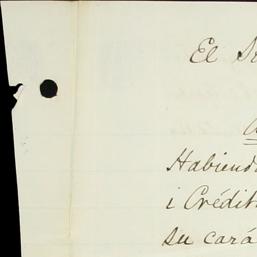 El S
Habiend
i Crédit
su cará